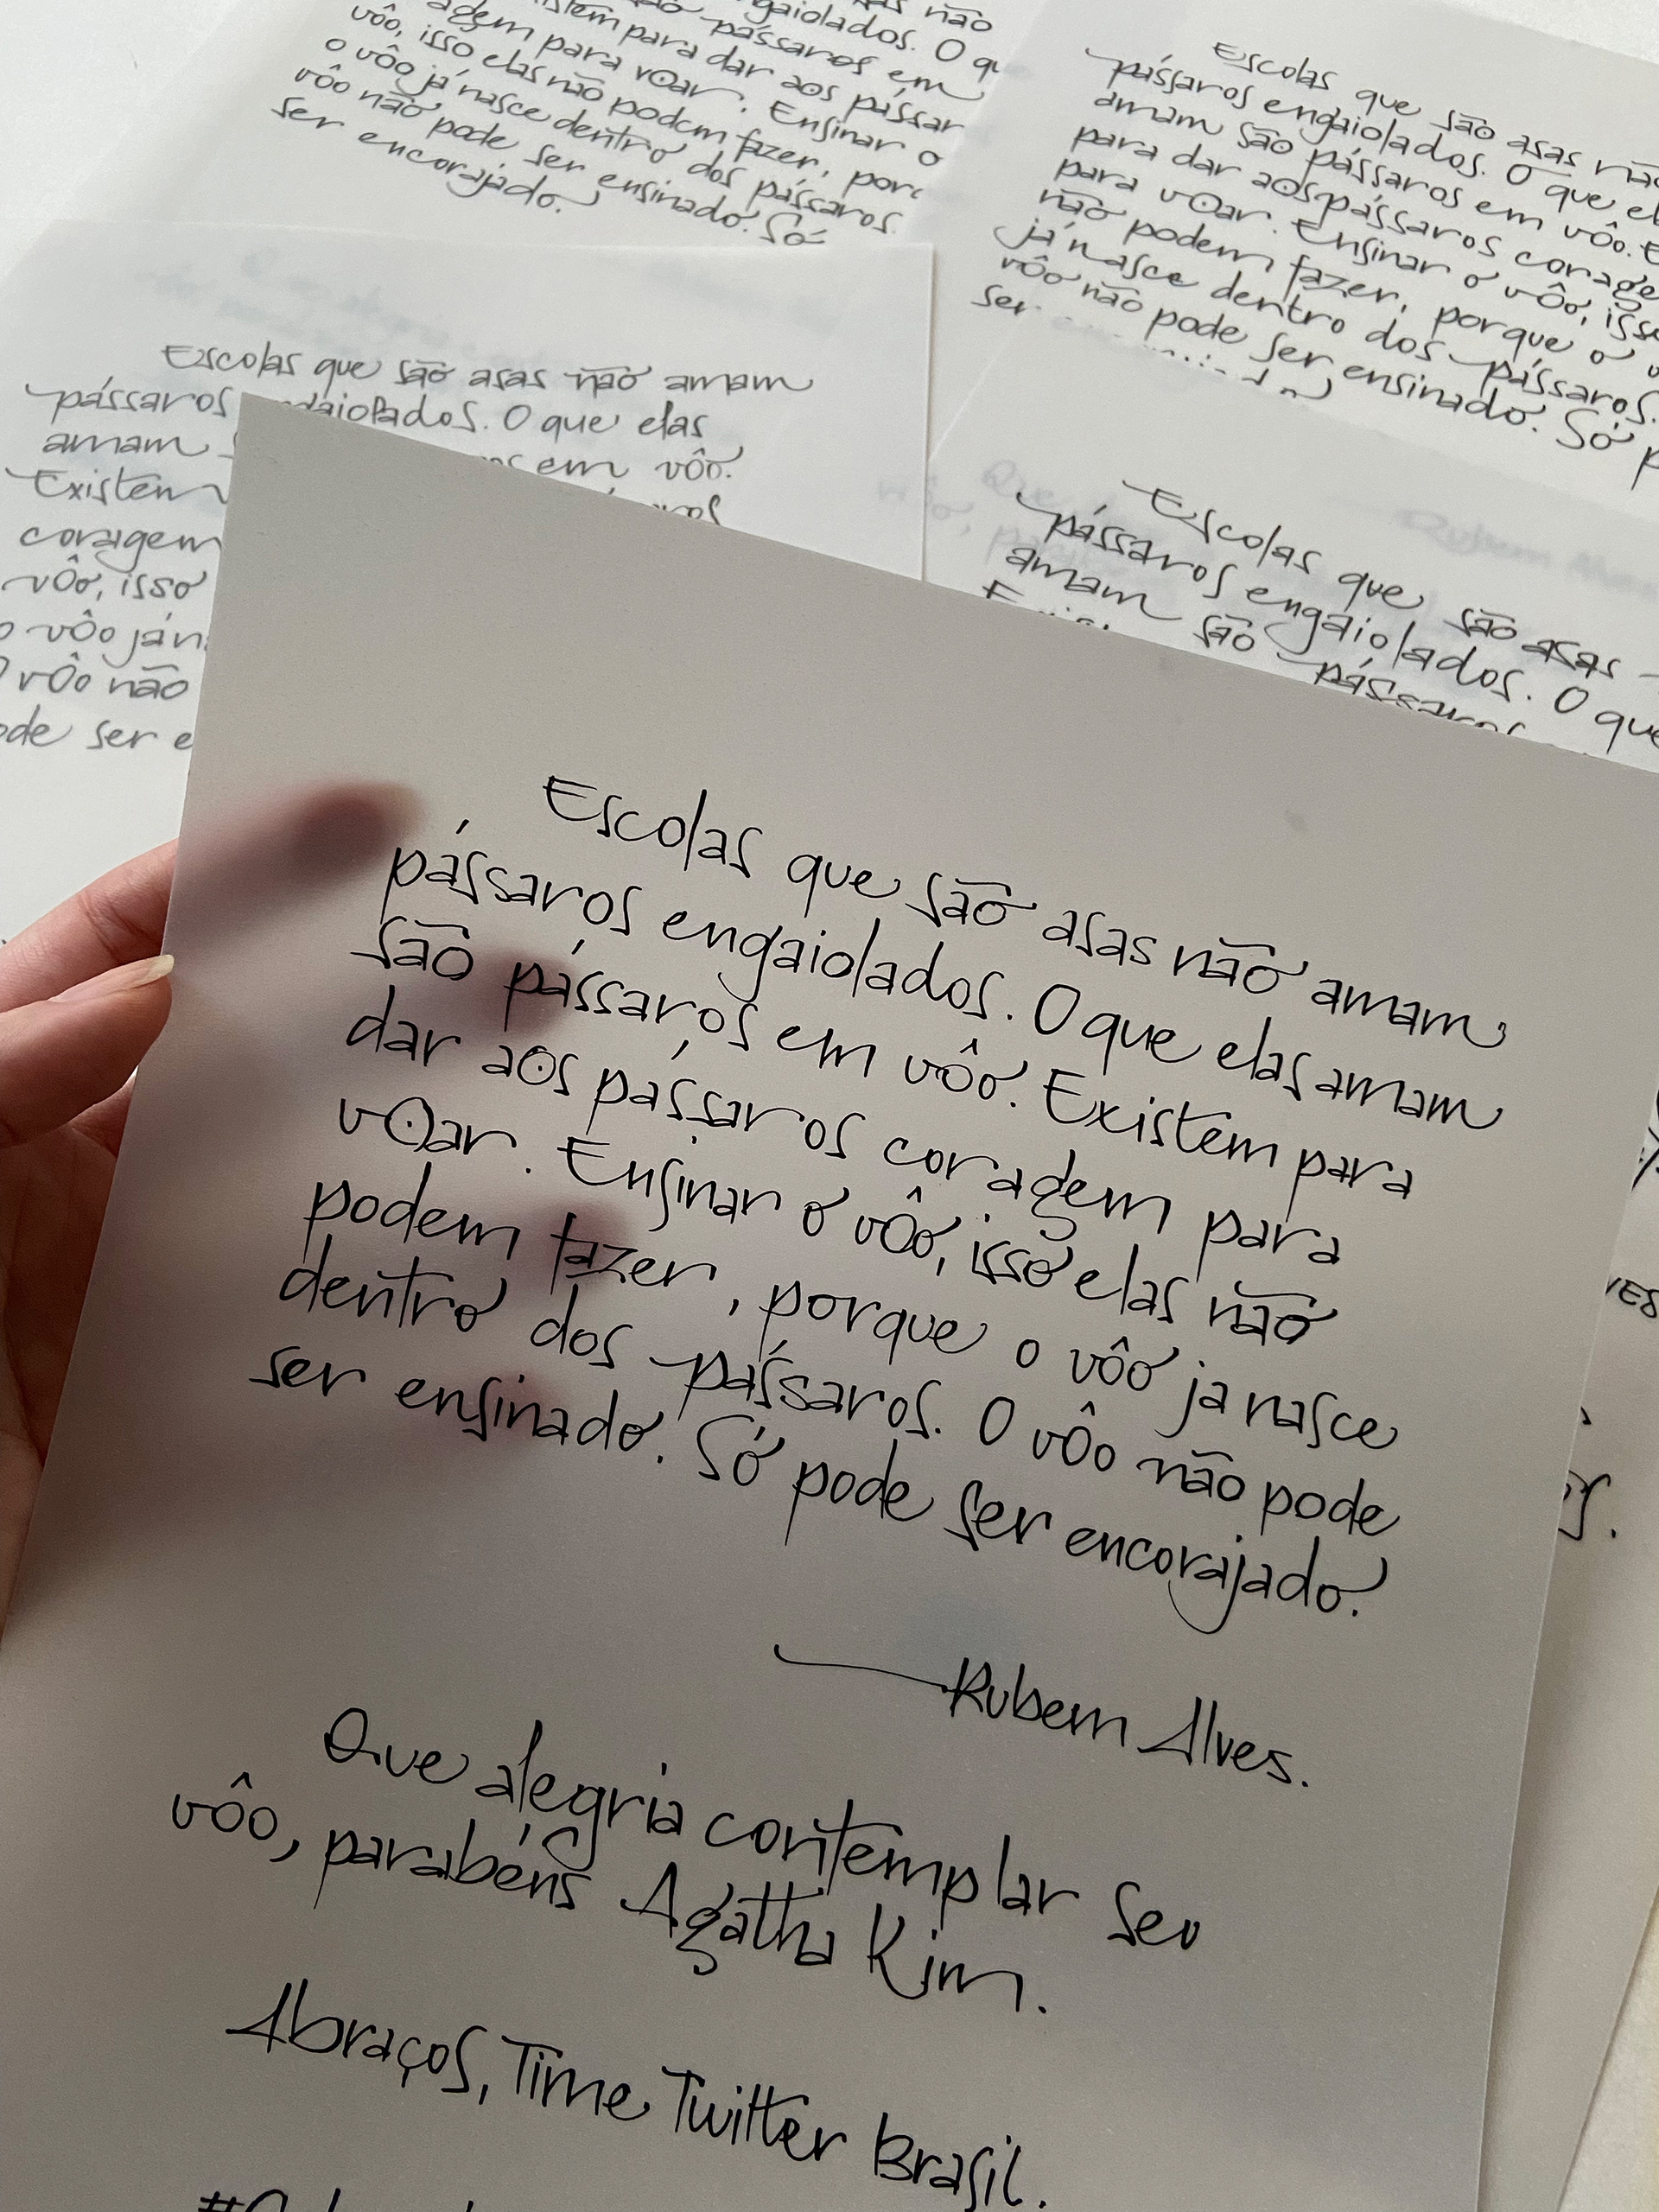 ngaiolados. O qu
pássaros em
para dar aos pássar
agem para voar. Ensinar o
vôo, isso elas não podem fazer, porq
o vôo já nasce dentro dos pássaros.
vôo não pode ser ensinado. Só
ser encorajado.
Escolas
que são asas não
pássaros engaiolados. O que el
amam são pássaros em vôo. E
para dar aos pássaros corage
para voar. Ensinar o vôo, isso
não podem fazer, porque o v
já nasce dentro dos pássaros.
vôo não pode ser ensinado. Só p
ser
Escolas que são asas não amam
pássaros engaiolados. O que elas
amam em vôo.
Existem
coragem
vôo, isso
o vôo já n
O vôo não
ode ser e
Escolas que são asas
pássaros engaiolados. O que
amam são pássaros
Escolas que são asas não amam
pássaros engaiolados. O que elas amam
são pássaros em vôo. Existem para
dar aos pássaros coragem para
voar. Ensinar o vôo, isso elas não
podem fazer, porque o vôo ja nasce
dentro dos pássaros. O vôo não pode
ser ensinado. Só pode ser encorajado.
Rubem Alves.
Que alegria contemplar seu
vôo, parabéns Agatha Kim.
Abraços, Time Twitter Brasil.